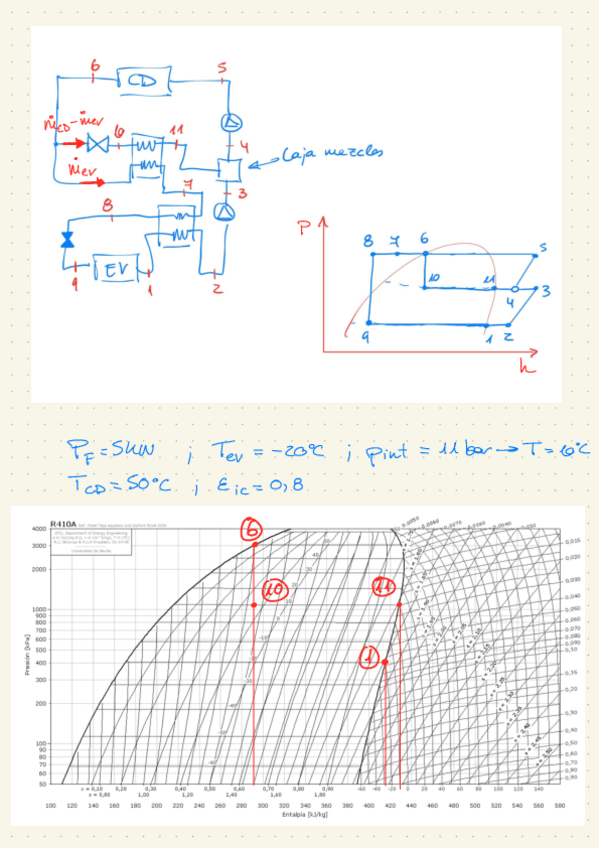 6
CD
5
ṁCD-ṁev
6
11
4
Caja mezclas
ṁev
7
3
8
9
EV
1
2
P
8 7 6
5
10
11
4
3
9
1 2
h
PF = 5kW ; Tev = -20ºC ; pint = 11 bar → T = 10ºC
TCD = 50ºC ; εic = 0,8
R410A
4000
3000
2000
1000
900
800
700
600
500
400
300
200
100
90
80
70
60
50
Presión [kPa]
6
10
11
1
0,015
0,020
0,030
0,040
0,050
0,060
0,070
0,080
0,090
0,10
0,15
0,20
0,30
0,40
0,50
0,60
0,70
0,80
0,90
x = 0,10 0,20 0,30 0,40 0,50 0,60 0,70 0,80 0,90
-60 -40 -20 0 20 40 60 80 100 120 140
100 120 140 160 180 200 220 240 260 280 300 320 340 360 380 400 420 440 460 480 500 520 540 560 580
Entalpía [kJ/kg]